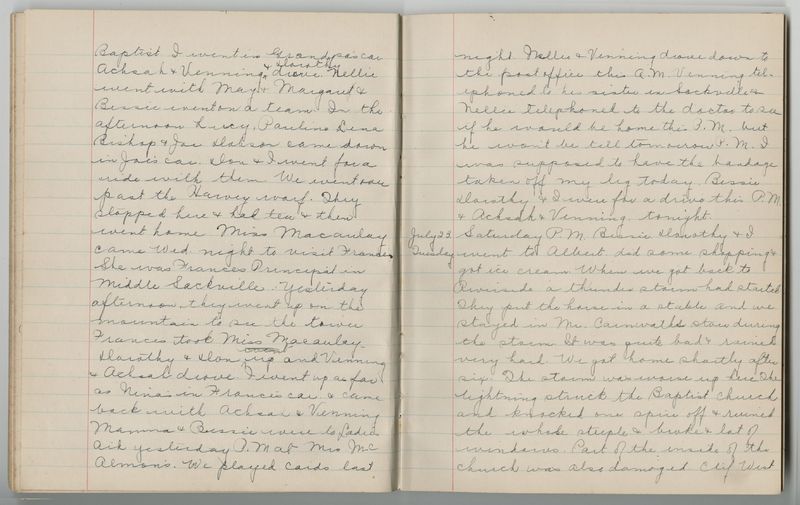 Baptist I went in Grandpa's car
Achsah & Venning & Dorothy drove. Nellie
went with May & Margaret &
Bessie went on a team. In the
afternoon Lucy, Pauline Lena
Bishop & Joe Dobson came down
in Joe's car. Don & I went for a
ride with them. We went over
past the Harvey warf. They
stopped here & had tea & then
went home. Miss Macaulay
came Wed. night to visit Frances.
She was Frances Principal in
Middle Sackville. Yesterday
afternoon they went up on the
mountain to see the tower
Frances took Miss Macaulay
Dorothy & Don up and Venning
& Achsah drove. I went up as far
as Nina's in Frances car & came
back with Achsah & Venning
Mamma & Bessie were to Ladies
Aid yesterday P.M at Mrs Mc
Almon's. We played cards last
night. Nellie & Venning drove down to
the post office this A.M. Venning tel-
ephoned to his sister in Sackville &
Nellie telephoned to the doctor to see
if he would be home this P.M. but
he won't be till tomorrow P.M. I
was supposed to have the bandage
taken off my leg today. Bessie
Dorothy & I were for a drive this P.M
& Achsah & Venning tonight.
July 23 Saturday P.M. Bessie Dorothy & I
Tuesday went to Albert did some shopping &
got ice cream When we got back to
Riverside a thunder storm had started
They put the horse in a stable and we
stayed in Mr. Carnwath's store during
the storm It was quite bad & rained
very hard. We got home shortly after
six. The storm was worse up here The
lightning struck the Baptist church
and knocked one spire off & ruined
the whole steeple & broke a lot of
windows. Part of the inside of the
church was also damaged Clif West